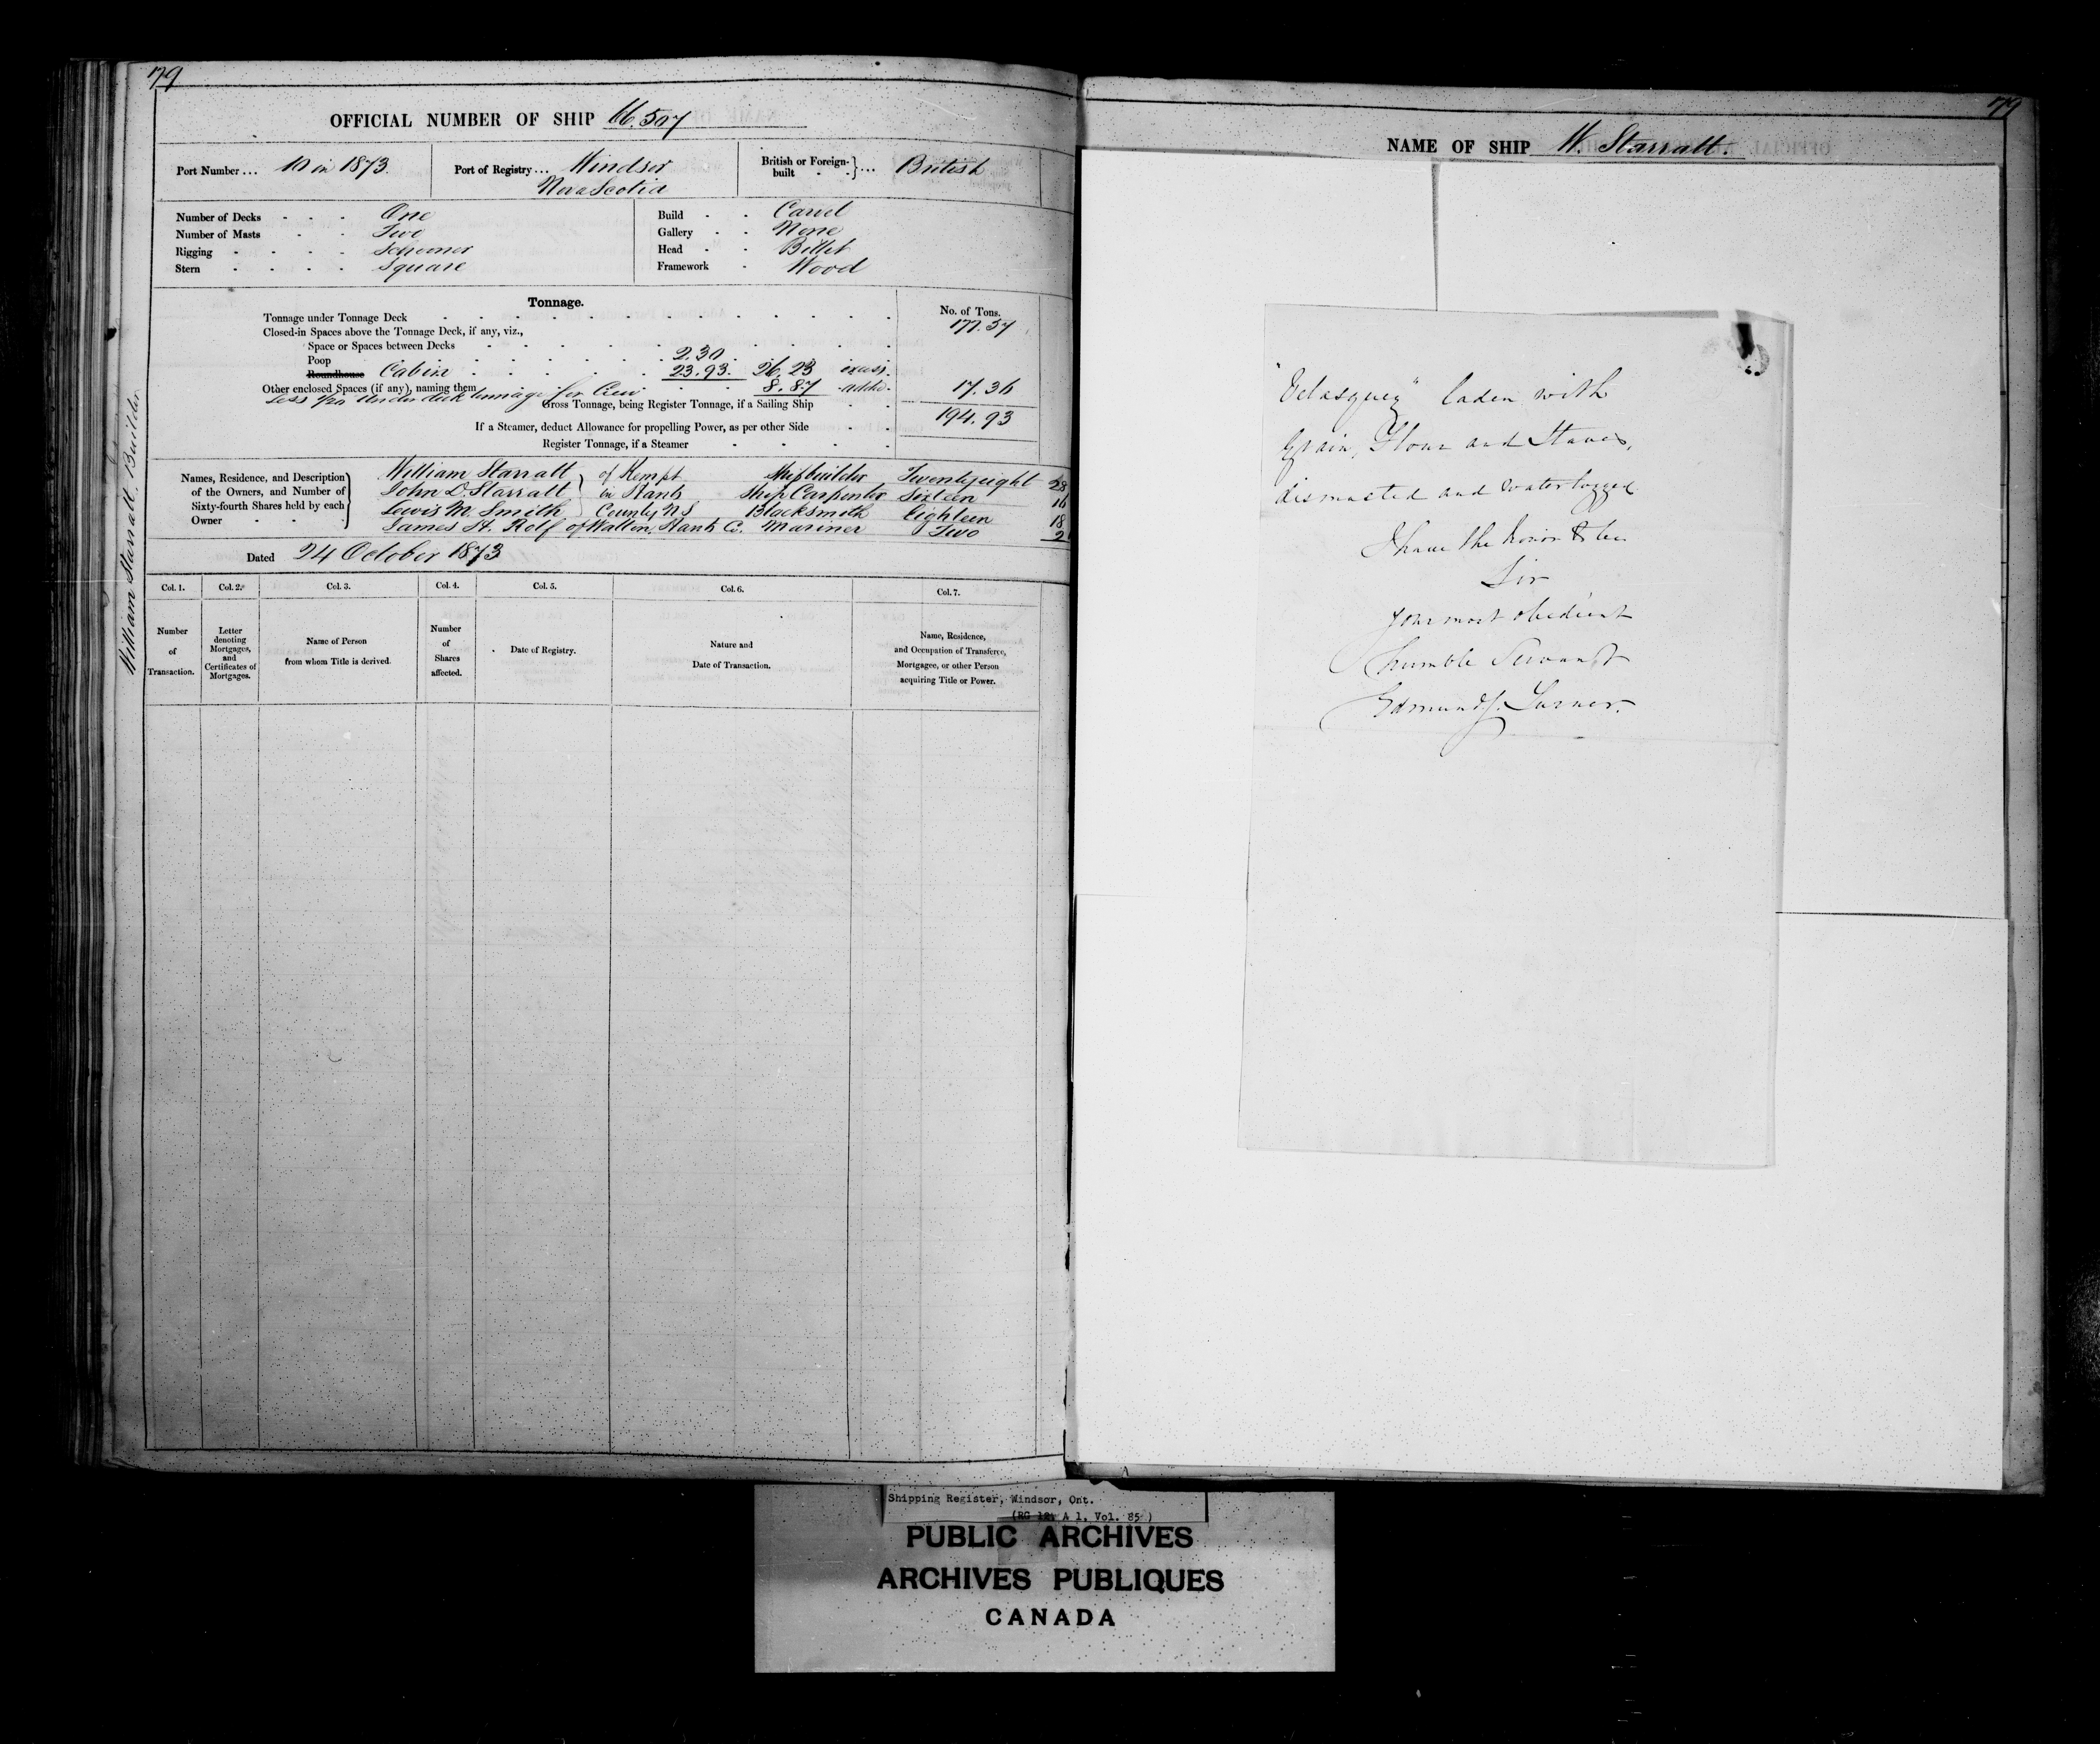 79
OFFICIAL NUMBER OF SHIP 66.507
Port Number ... 10 in 1873.
Port of Registry ... Windsor
Nova Scotia
British or Foreign-built ... British
Number of Decks - - - One
Number of Masts - - Two
Rigging - - - - Schooner
Stern - - - - Square
Build - - Carvel
Gallery - - None
Head - - Billet
Framework - Wood
Tonnage.
No. of Tons.
Tonnage under Tonnage Deck 177.57
Closed-in Spaces above the Tonnage Deck, if any, viz.,
Space or Spaces between Decks
Poop 2.30
Roundhouse Cabin 23.93. 26.23 excess.
Other enclosed Spaces (if any), naming them 8.87 17.36
Less under deck tonnage for Crew
Gross Tonnage, being Register Tonnage, if a Sailing Ship 194.93
If a Steamer, deduct Allowance for propelling Power, as per other Side
Register Tonnage, if a Steamer
Names, Residence, and Description of the Owners, and Number of Sixty-fourth Shares held by each Owner
William Starratt of Kempt Shipbuilder Twenty eight 28
John D. Starratt in Hants Ship Carpenter Sixteen 16
Lewis M. Smith County NS Blacksmith Eighteen 18
James H. Rolf of Walton, Hants Co. Mariner Two 2
Dated 24 October 1873
William Starratt, Builder
Col. 1. Col. 2. Col. 3. Col. 4. Col. 5. Col. 6. Col. 7.
Number of Transaction.
Letter denoting Mortgages, and Certificates of Mortgages.
Name of Person from whom Title is derived.
Number of Shares affected.
Date of Registry.
Nature and Date of Transaction.
Name, Residence, and Occupation of Transferee, Mortgagee, or other Person acquiring Title or Power.
79
NAME OF SHIP W. Starratt.
"Velasquez" laden with
Grain, Flour and Staves,
dismasted and waterlogged
I have the honor to be
Sir
your most obedient
humble Servant
Shipping Register, Windsor, Ont.
(RG 12, A 1, Vol. 85)
PUBLIC ARCHIVES
ARCHIVES PUBLIQUES
CANADA